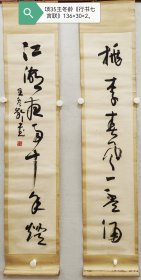 B35王冬龄《行书七言联》136×30×2。
桃李春风一杯酒
江湖夜雨十年灯
王冬龄书